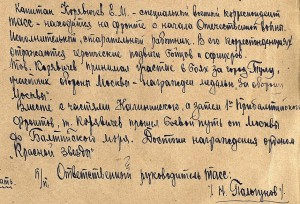 Капитан Коряычев Е.М. - специальный военный корреспондент
ТАСС - находится на фронте с начала Отечественной войны.
Исполнительный и старательный работник. В его корреспонденциях
отражаются героические подвиги бойцов и офицеров.
Тов. принимал участие в боях за город Тулу,
участник обороны Москвы - награжден медалью "За оборону
Москвы".
Вместе с частями Калининского, а затем 1го Прибалтийского
фронтов, т. прошел боевой путь от Москвы
до Балтийского моря. Достоин награждения орденом
"Красной Звезды".
п/п Ответственный руководитель ТАСС:
/Н. Пальгунов/